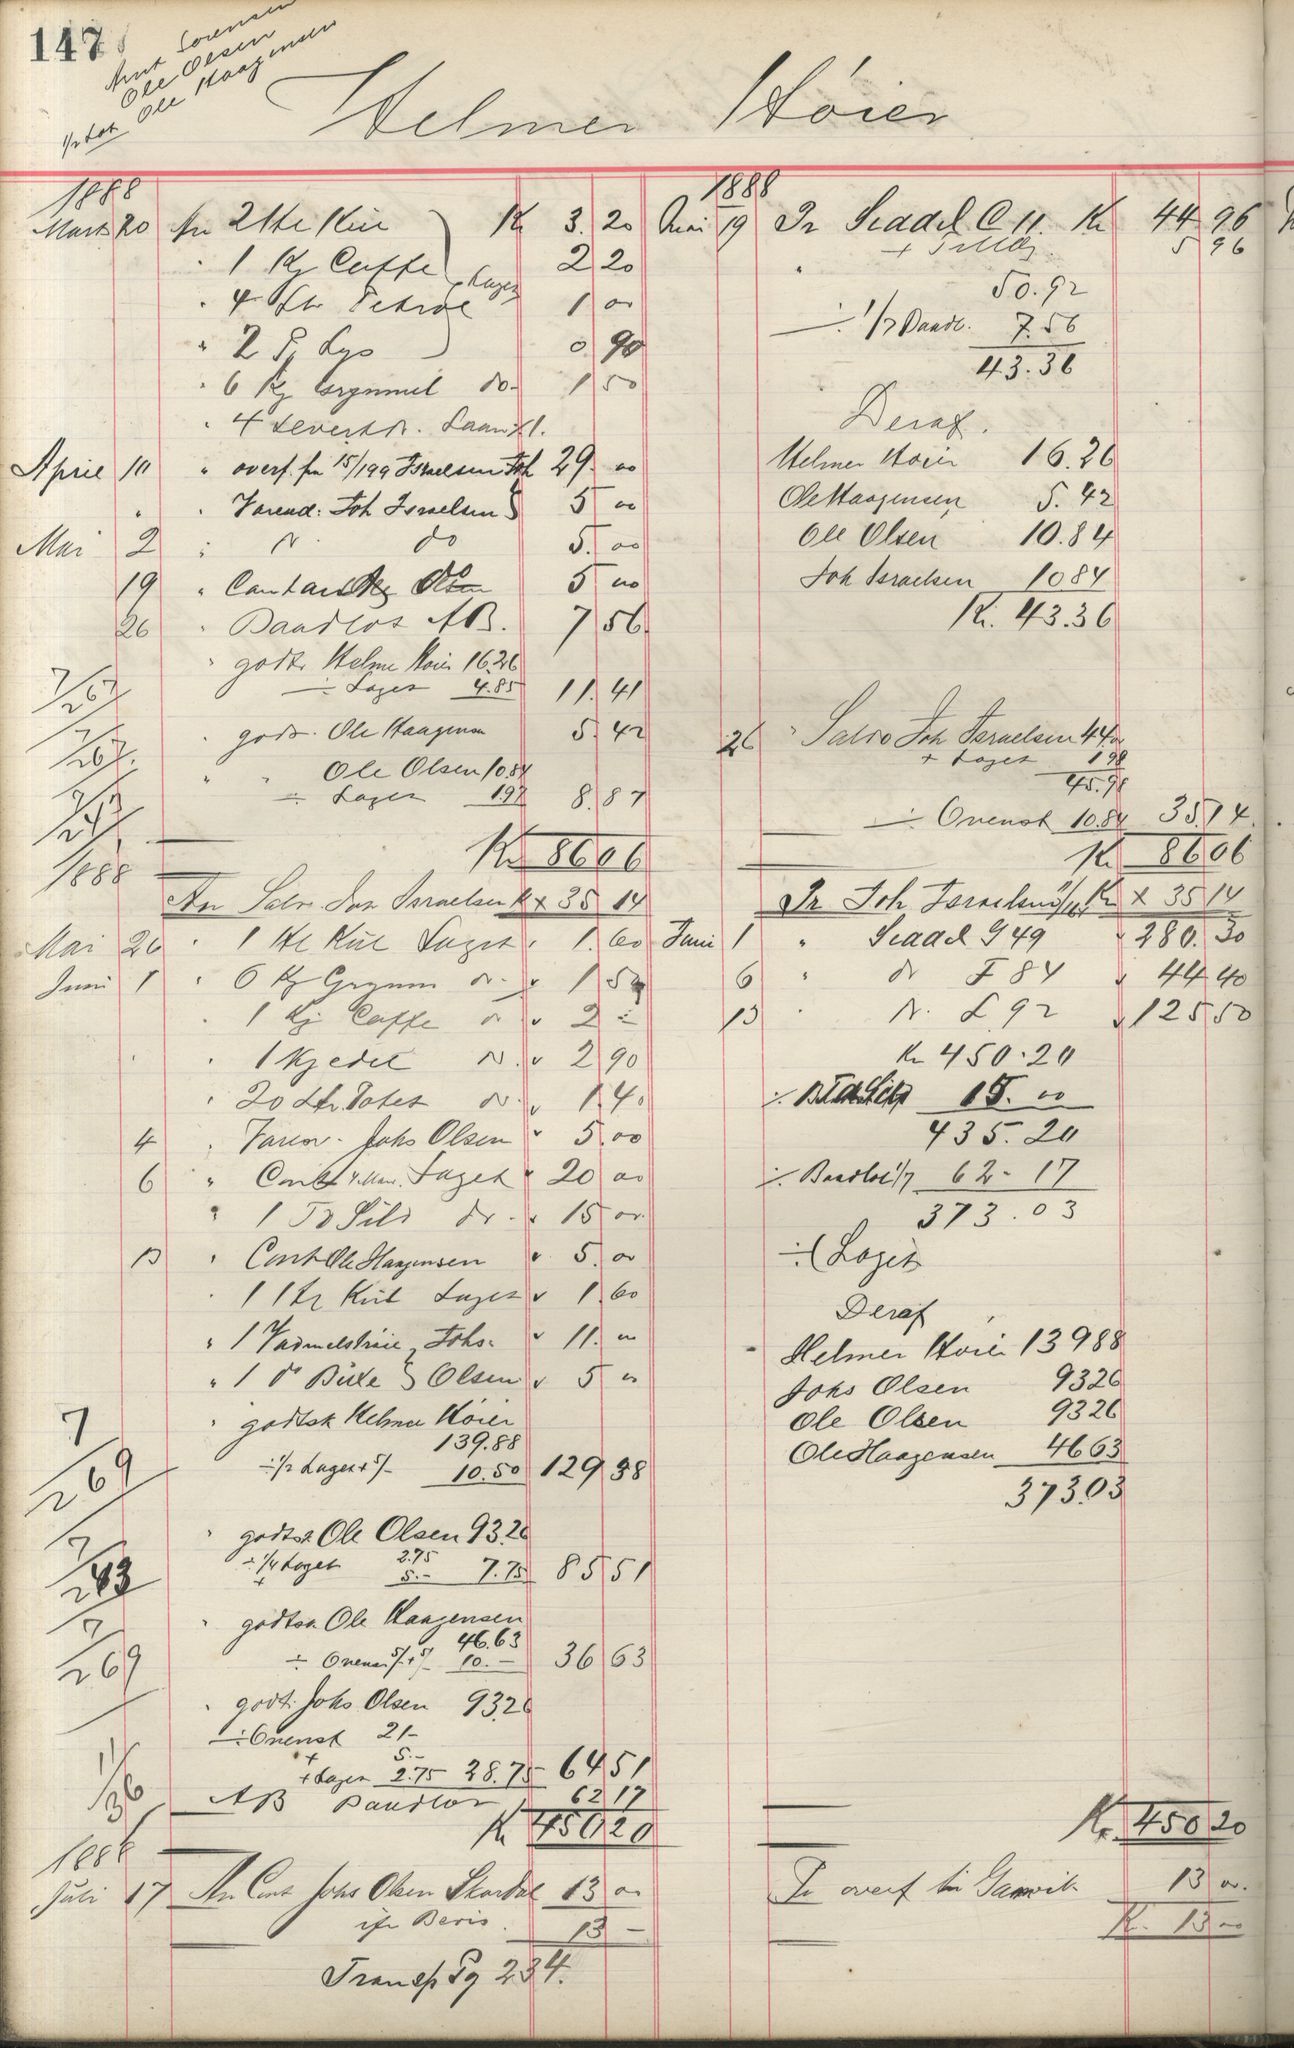 147
Ole Olsen
Ole Haagensen
Helmer Høier
1888
Marts 20 An 2 Hl Kul Kr 3.20
" 1 Kg Caffe 2 20
Laget
" 4 Ltr Petrol 1 00
" 2 P. Lys 0 90
" 6 Kg Grynmel do 1 50
" 4
April 10 " overf. fra 15/199 Israelsen Joh 29.00
" " Joh Israelsen 5 00
Mai 2 " do 5.00
19 " Contant do 5 00
26 " Baadlot AB. 7 56
" godts. Helmer Høier 16.26
÷ Laget 4.85 11.41
7/267
" godts. Ole Haagensen 5.42
7/267
" " Ole Olsen 10.84
÷ Laget 1.97 8.87
7/243
Kr 86 06
1888
An Saldo Joh Israelsen Kr × 35 14
Mai 26 " 1 Hl Kul Laget " 1.60
Juni 1 " 6 Kg Grynm do " 1 50
" 1 Kg Caffe do " 2 –
" 1 Kjedel do " 2 90
" 20 Ltr. Potet do " 1.40
4 " Joks Olsen " 5.00
6 " Cont Laget " 20 00
" 1 Td Sild do " 15 00
13 " Cont Ole Haagensen " 5.00
" 1 Hl Kul Laget " 1.60
" 1 Vadmelstrøie, Johs. " 11.00
" 1 do Buxe Olsen " 5 00
" godtsk Helmer Høier
139.88
÷ 1/2 Laget + 5/- 10.50 129 38
7/269
" godtsk Ole Olsen 93.26
÷ 1/4 Laget 2.75
+ 5.- 7.75 85 51
7/243
" godtsk. Ole Haagensen
46.63
÷ Ovenst 5/- + 5/- 10.- 36 63
7/269
" godt. Johs Olsen 93.26
÷ Ovenst 21-
+ 5.-
+ Laget 2.75 28.75 64 51
11/36
AB Baadlot 62 17
Kr 450 20
1888
Juli 17 An Cont Johs Olsen Skardal 13 00
13 –
Transp Pg 234.
1888
Mai 19 Pr Seaddel C 11. Kr 44.96
+ Tillæg 5 96
50.92
÷ 1/7 Baadl. 7.56
43.36
Deraf.
Helmer Høier 16.26
Ole Haagensen 5.42
Ole Olsen 10.84
Joh Israelsen 10 84
Kr. 43.36
26 " Saldo Joh Israelsen 44 00
+ Laget 1 98
45.98
÷ Ovenst 10.84 35.14
Kr 86 06
Pr Joh Israelsen Kr × 35 14
Juni 1 " Seaddel G 49 " 280.30
6 " do F 84 " 44 40
13 " do L 92 " 125 50
Kr 450.20
÷ 15.00
435.20
÷ Baadlot 1/7 62-17
373.03
÷ Laget
Deraf
Helmer Høier 139 88
Johs Olsen 93 26
Ole Olsen 93 26
Ole Haagensen 46 63
373.03
Kr. 450 20
Pr overf til Gamvik 13 00.
Kr. 13 00